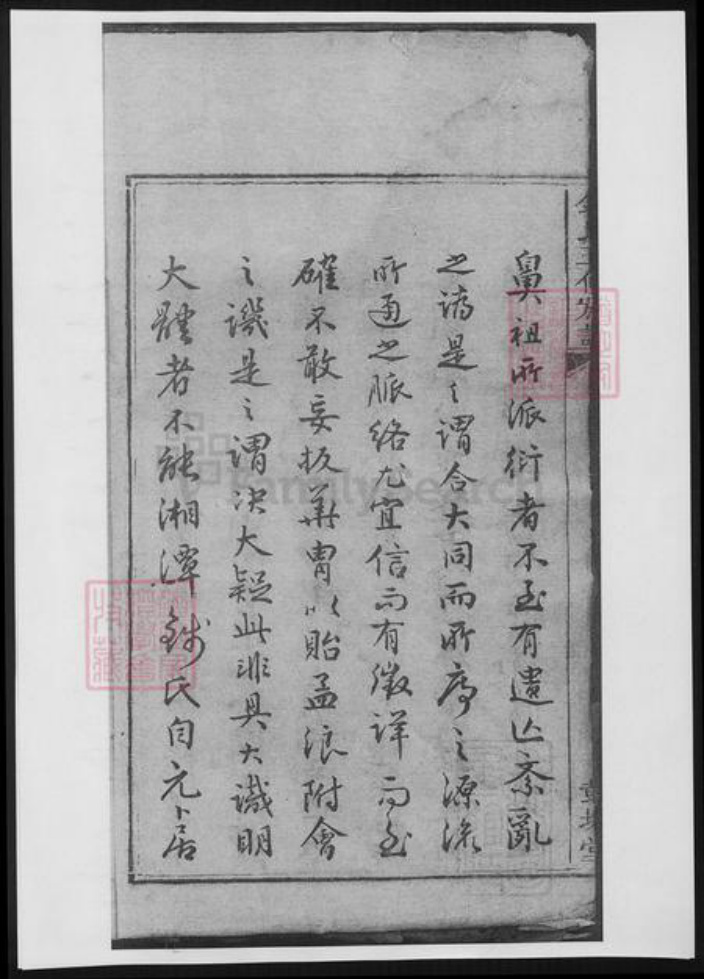 鼻祖所派衍者不至有遺亡紊亂
之譌是之謂合大同而所序之源流
所通之脈絡尤宜信而有徵詳而至
確不敢妄扳華冑以貽孟浪附會
之譏是之謂决大疑此非具大識明
大體者不能湘潭錢氏自元占居
FamilySearch